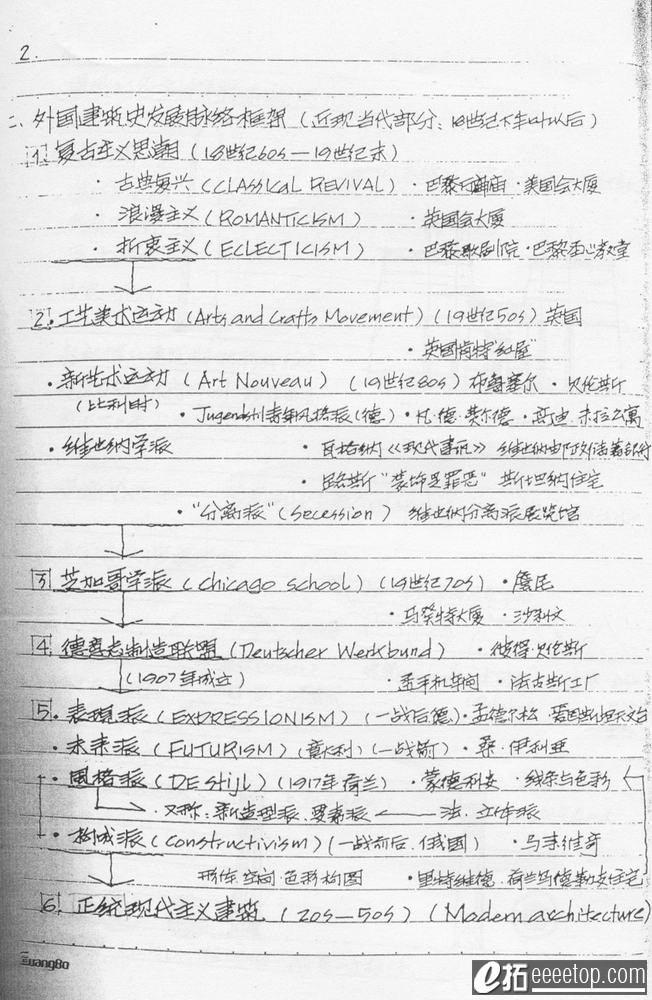 2.
二、外国建筑史发展脉络框架（近现当代部分：18世纪下半叶以后）
1. 复古主义思潮（18世纪60s—19世纪末）
·古典复兴（CLASSICAL REVIVAL）·巴黎万神庙·美国会大厦
·浪漫主义（ROMANTICISM）·英国会大厦
·折衷主义（ECLECTICISM）·巴黎歌剧院·巴黎圣心教堂
2.·工艺美术运动（Arts and Crafts Movement）（19世纪50s）英国
·英国肯特"红屋"
·新艺术运动（Art Nouveau）（19世纪80s）布鲁塞尔·贝伦斯
（比利时）·Jugendstil青年风格派（德）·凡·德·费尔德·高迪·米拉公寓
·维也纳学派·瓦格纳《现代建筑》维也纳邮政储蓄银行
·路斯"装饰是罪恶"斯坦纳住宅
·"分离派"（Secession）维也纳分离派展览馆
3 芝加哥学派（Chicago school）（19世纪70s）·詹尼
·马癸特大厦·沙利文
4.德意志制造联盟（Deutscher Werkbund）·彼得·贝伦斯
（1907年成立）·透平机车间·法古斯工厂
5.·表现派（EXPRESSIONISM）（一战后德）·孟德尔松·爱因斯坦天文台
·未来派（FUTURISM）（意大利）（一战前）·桑·伊利亚
·风格派（DE Stijl）（1917年荷兰）·蒙德利安·线条与色彩
·又称：新造型派、要素派 法·立体派
·构成派（Constructivism）（一战前后·俄国）·马列维奇
形体·空间·色彩构图·里特维德·荷兰乌德勒支住宅
6.正统现代主义建筑（20s—50s）（Modern architecture）
Guangbo
e拓 eeeetop.com